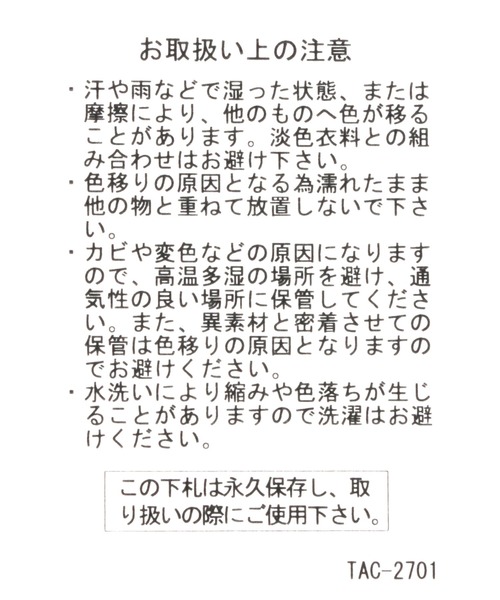 お取扱い上の注意
・汗や雨などで湿った状態、または
摩擦により、他のものへ色が移る
ことがあります。淡色衣料との組
み合わせはお避け下さい。
・色移りの原因となる為濡れたまま
他の物と重ねて放置しないで下さ
い。
・カビや変色などの原因になります
ので、高温多湿の場所を避け、通
気性の良い場所に保管してくださ
い。また、異素材と密着させての
保管は色移りの原因となりますの
でお避けください。
・水洗いにより縮みや色落ちが生じ
ることがありますので洗濯はお避
けください。
この下札は永久保存し、取
り扱いの際にご使用下さい。
TAC-2701